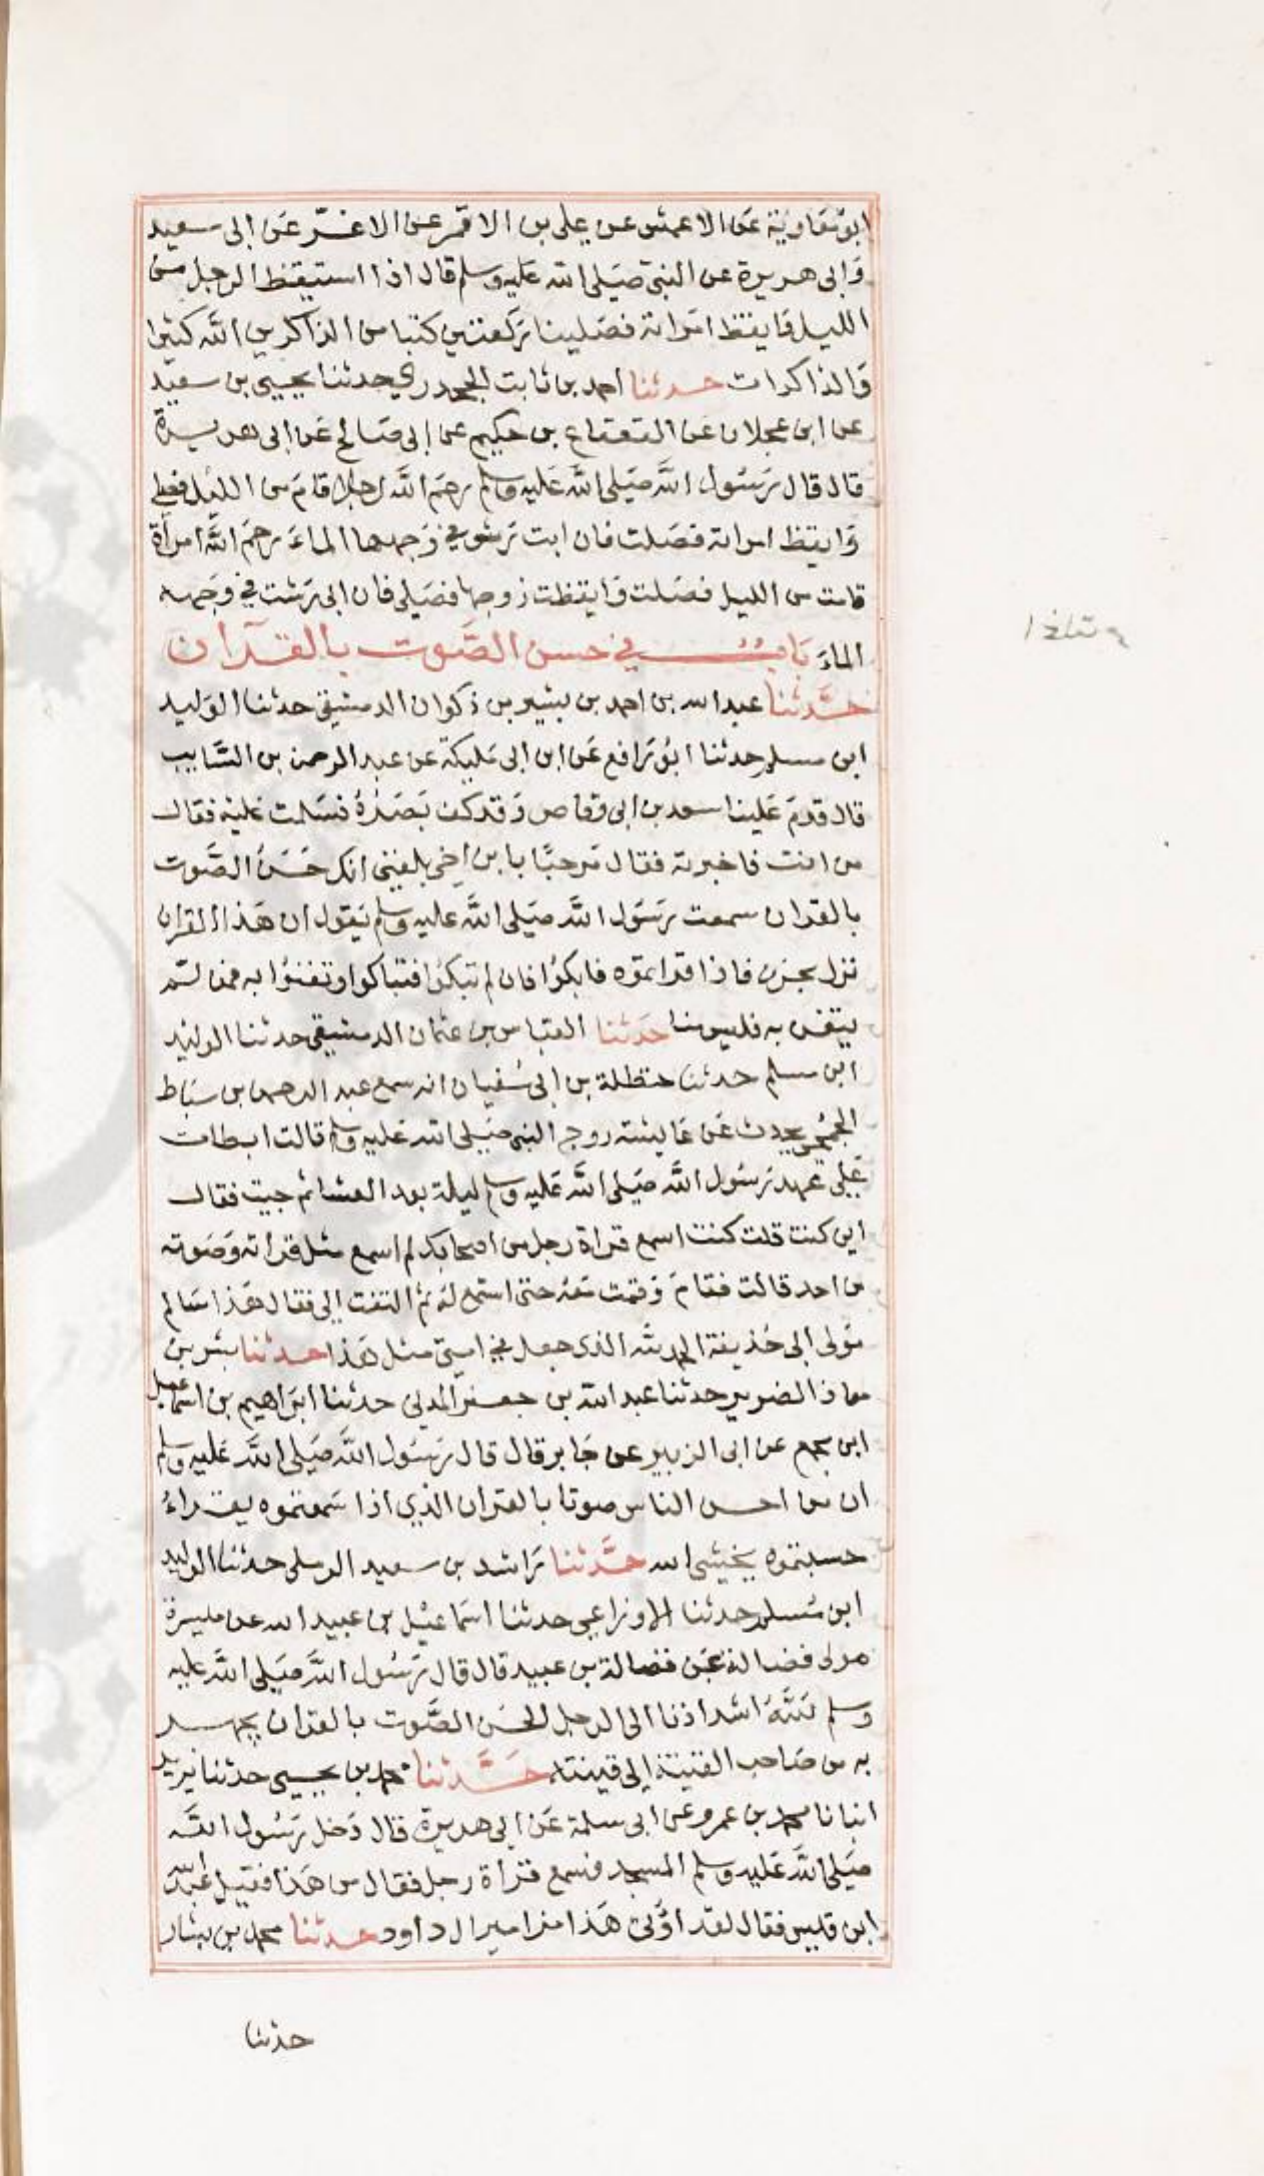 ابو معاوية عن الاعمش عن على بن الاقمر عن الاغر عن ابى سعيد
وابى هريرة عن النبى صلى الله عليه وسلم قال اذا استيقظ الرجل من
الليل فايقظ امراته فصلينا ركعتين كتبا من الذاكرين الله كثيرا
والذاكرات حدثنا احمد بن ثابت الجحدرى حدثنا يحيى بن سعيد
عن ابن عجلان عن القعقاع بن حكيم عن ابى صالح عن ابى هريرة
قال قال رسول الله صلى الله عليه وسلم رحم الله رجلا قام من الليل فصلى
وايقظ امراته فصلت فان ابت رش فى وجهها الماء رحم الله امرأة
قامت من الليل فصلت وايقظت زوجها فصلى فان ابى رشت فى وجهه
الماء باب فى حسن الصوت بالقرآن
حدثنا عبد الله بن احمد بن بشير بن ذكوان الدمشقى حدثنا الوليد
ابن مسلم حدثنا ابو رافع عن ابن ابى مليكة عن عبد الرحمن بن السايب
قال قدم علينا سعد بن ابى وقاص وقد كف بصره فسلمت عليه فقال
من انت فاخبرته فقال مرحبا بابن اخى بلغنى انك حسن الصوت
بالقران سمعت رسول الله صلى الله عليه وسلم يقول ان هذا القران
نزل بحزن فاذا قراتموه فابكوا فان لم تبكوا فتباكوا وتغنوا به فمن لم
يتغن به فليس منا حدثنا العباس بن عثمان الدمشقى حدثنا الوليد
ابن مسلم حدثنا حنظلة بن ابى سفيان انه سمع عبد الرحمن بن سباط
الجمحى يحدث عن عايشة زوج النبى صلى الله عليه وسلم قالت ابطات
على عهد رسول الله صلى الله عليه وسلم ليلة بعد العشا ثم جيت فقال
اين كنت قلت كنت اسمع قراة رجل من اصحابك لم اسمع مثل قراته وصوته
من احد قالت فقام وقمت معه حتى استمع له ثم التفت الى فقال هذا سالم
مولى ابى حذيفة الحمد لله الذى جعل فى امتى مثل هذا حدثنا بشر بن
معاذ الضرير حدثنا عبد الله بن جعفر المدنى حدثنا ابراهيم بن اسماعيل
ابن مجمع عن ابى الزبير عن جابر قال قال رسول الله صلى الله عليه وسلم
ان من احسن الناس صوتا بالقران الذي اذا سمعتموه يقراء
حسبتموه يخشى الله حدثنا راشد بن سعيد الرملى حدثنا الوليد
ابن مسلم حدثنا الاوزاعى حدثنا اسماعيل بن عبيد الله عن ميسرة
مولى فضالة عن فضالة بن عبيد قال قال رسول الله صلى الله عليه
وسلم لله اشد اذنا الى الرجل الحسن الصوت بالقران يجهر
به من صاحب القينة الى قينته حدثنا محمد بن يحيى حدثنا يزيد
انبانا محمد بن عمرو عن ابى سلمة عن ابى هريرة قال دخل رسول الله
صلى الله عليه وسلم المسجد فسمع قراة رجل فقال من هذا فقيل عبد الله
ابن قيس فقال لقد اوتى هذا مزامير ال داود حدثنا محمد بن بشار
حدثنا